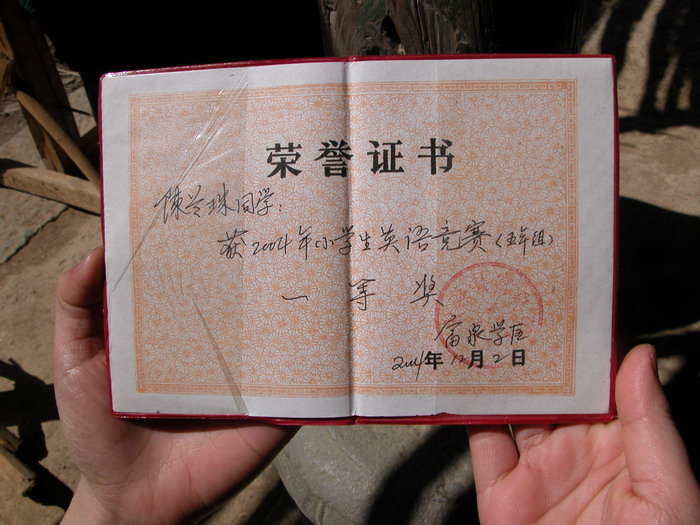 荣誉证书
陈兰珠同学：
获2004年小学生英语竞赛（五年组）
一等奖
富泉学区
2004年12月2日